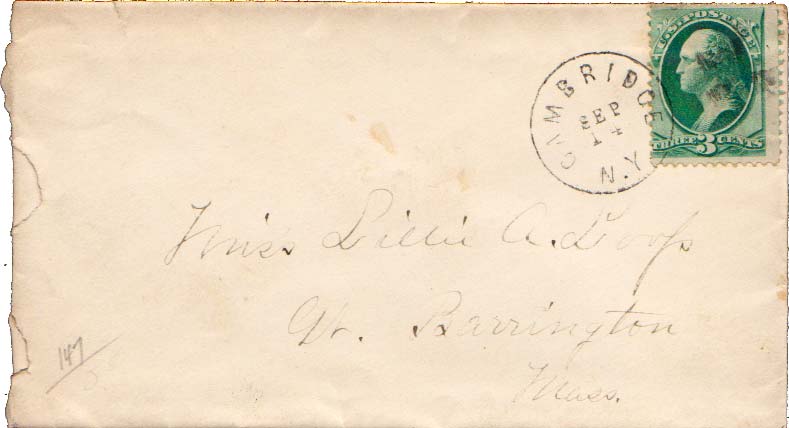 U.S. POSTAGE
THREE 3 CENTS
CAMBRIDGE
SEP
14
N.Y.
Miss Lillie A. Loop
Gt. Barrington
Mass.
147